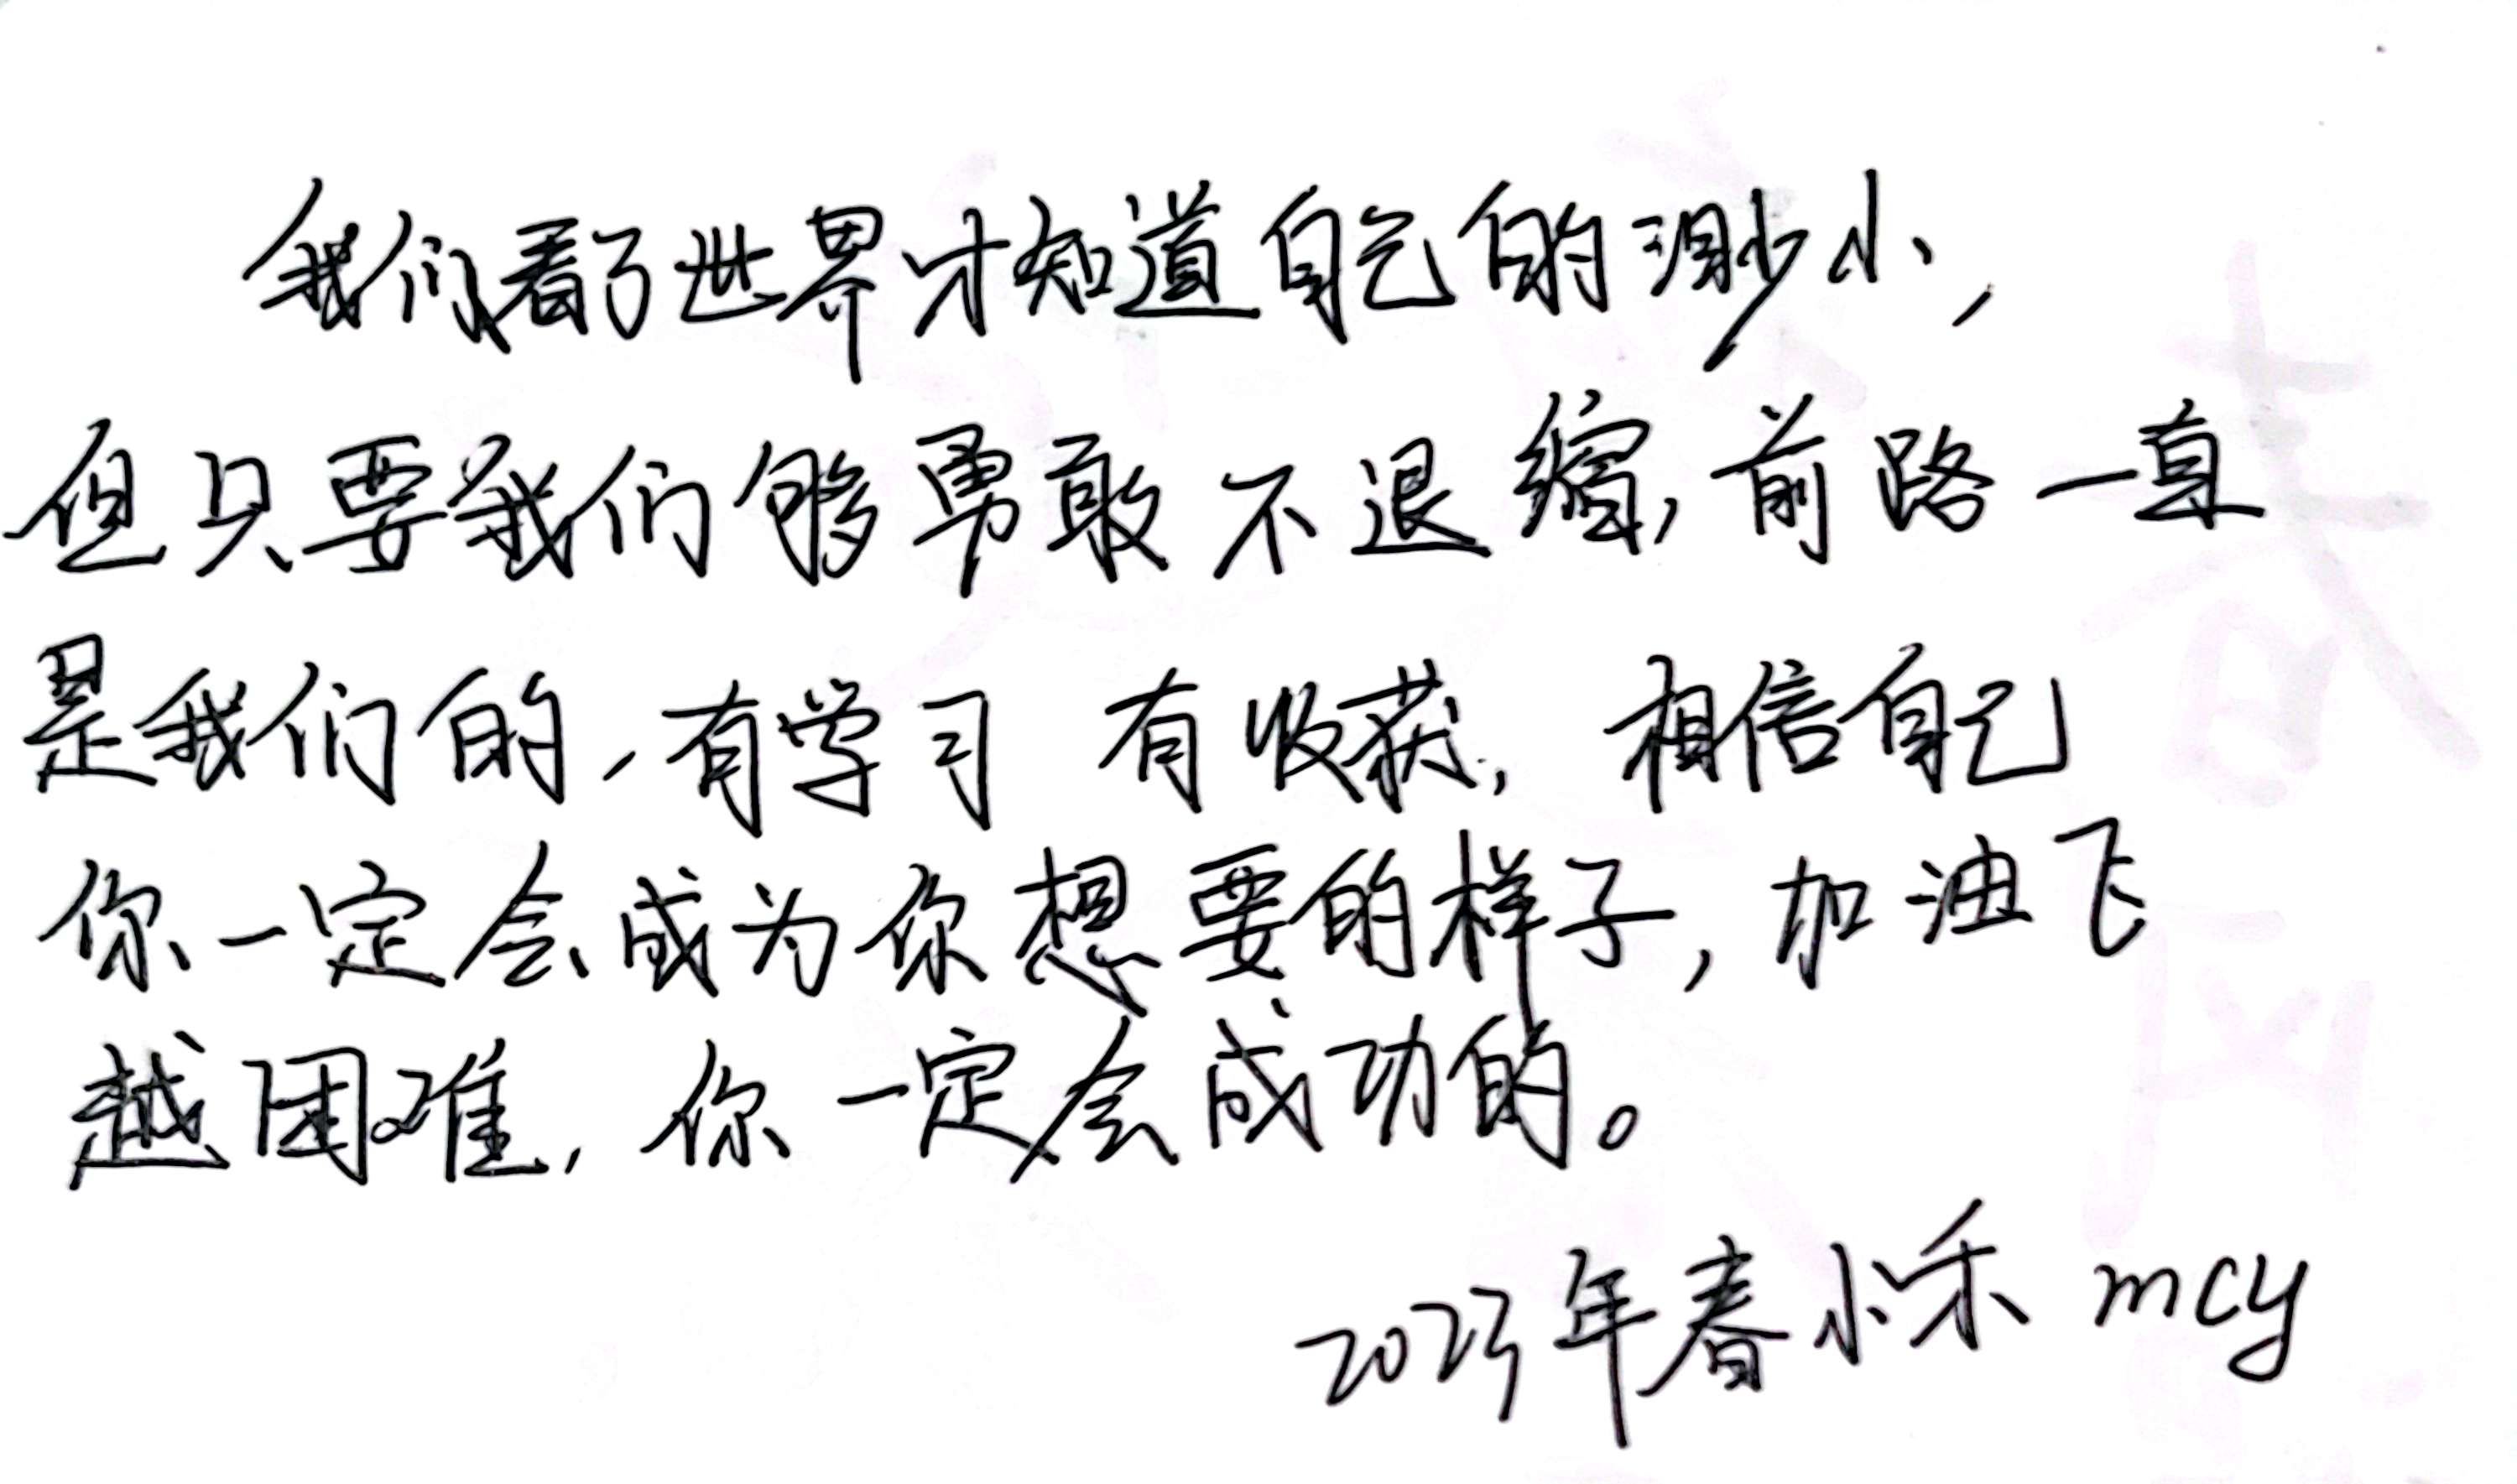 我们看了世界才知道自己的渺小,
但只要我们够勇敢不退缩,前路一直
是我们的,有学习 有收获,相信自己
你一定会成为你想要的样子,加油飞
越困难,你一定会成功的。
2023年春小禾 mcy